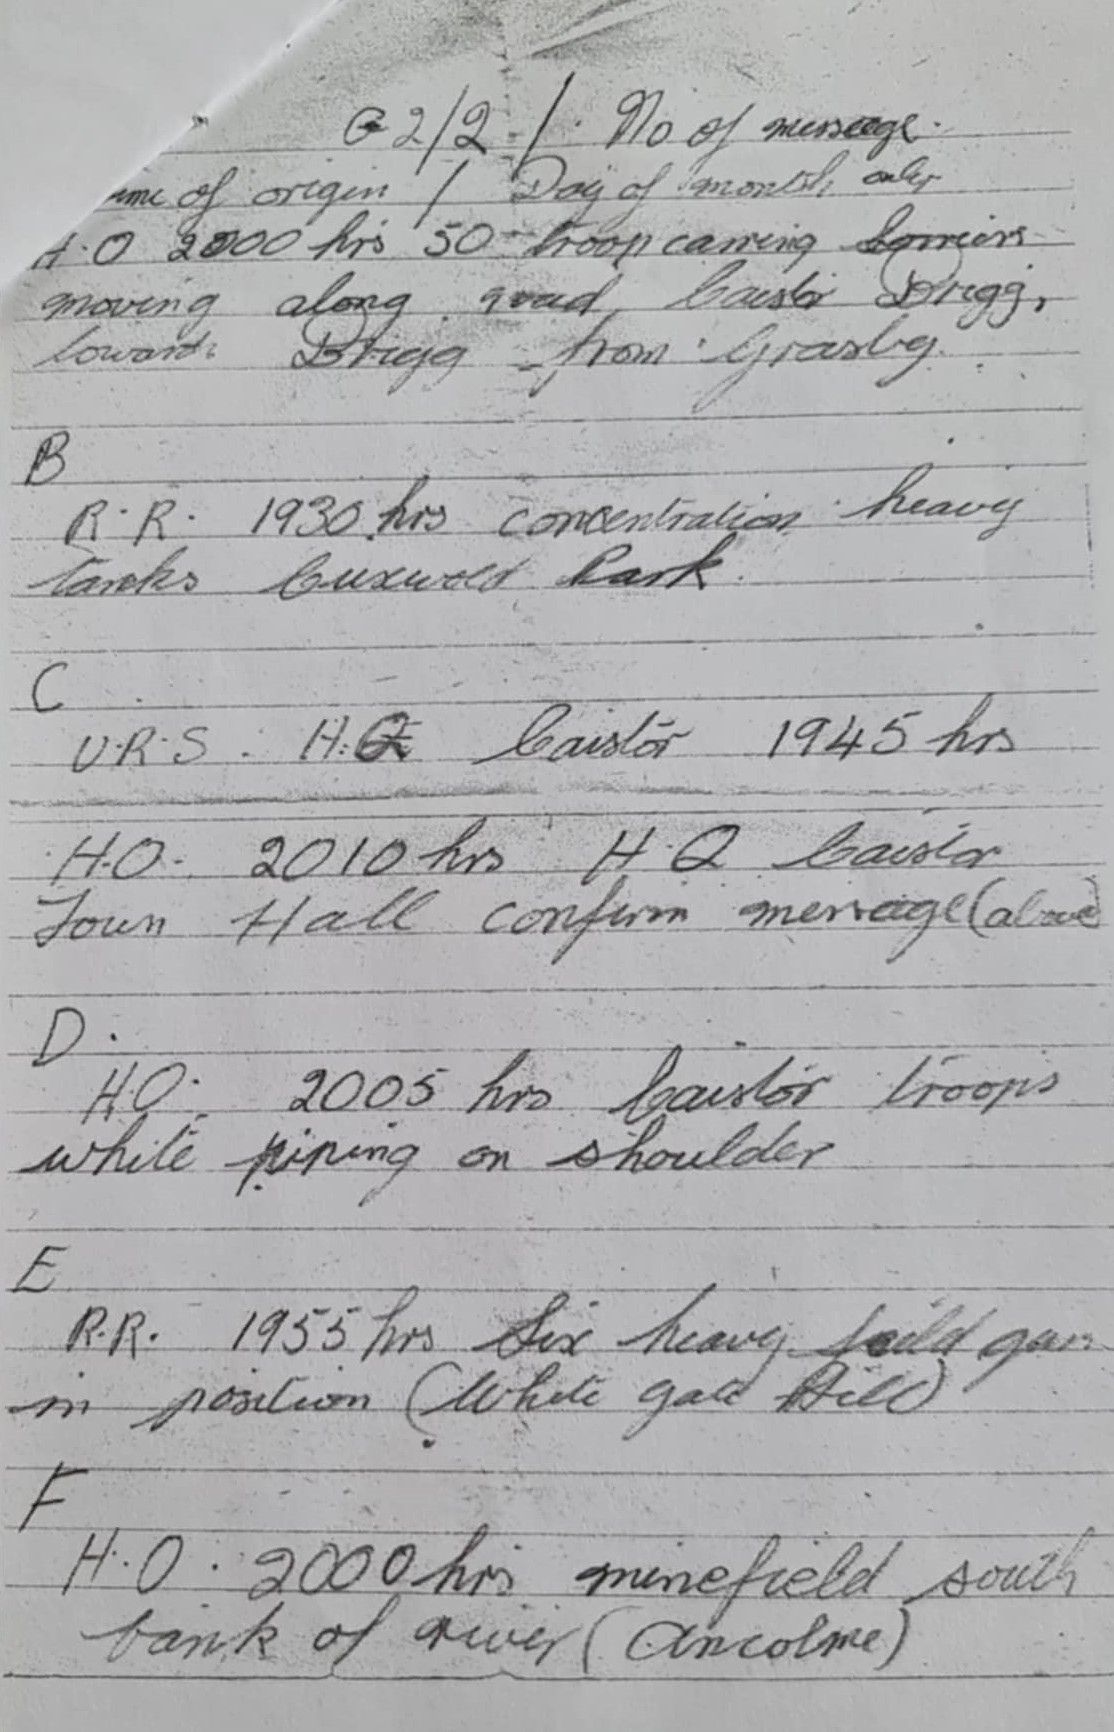 G 2/2 / No of message.
of origin / Day of month only
H.O 2000 hrs 50 troop carring
moving along road, Caistor Brigg,
towards Brigg from Grasby.
B
R.R. 1930 hrs concentration heavy
tanks Cuxwold Park.
C
U.R.S. H.Q Caistor 1945 hrs
H.O. 2010 hrs H.Q Caistor
Town Hall confirm message (above)
D.
H.O. 2005 hrs Caistor troops
white piping on shoulder
E
R.R. 1955 hrs Six heavy feild guns
in position (White Gate Hill)
F
H.O. 2000 hrs minefield south
bank of river (Ancolme)